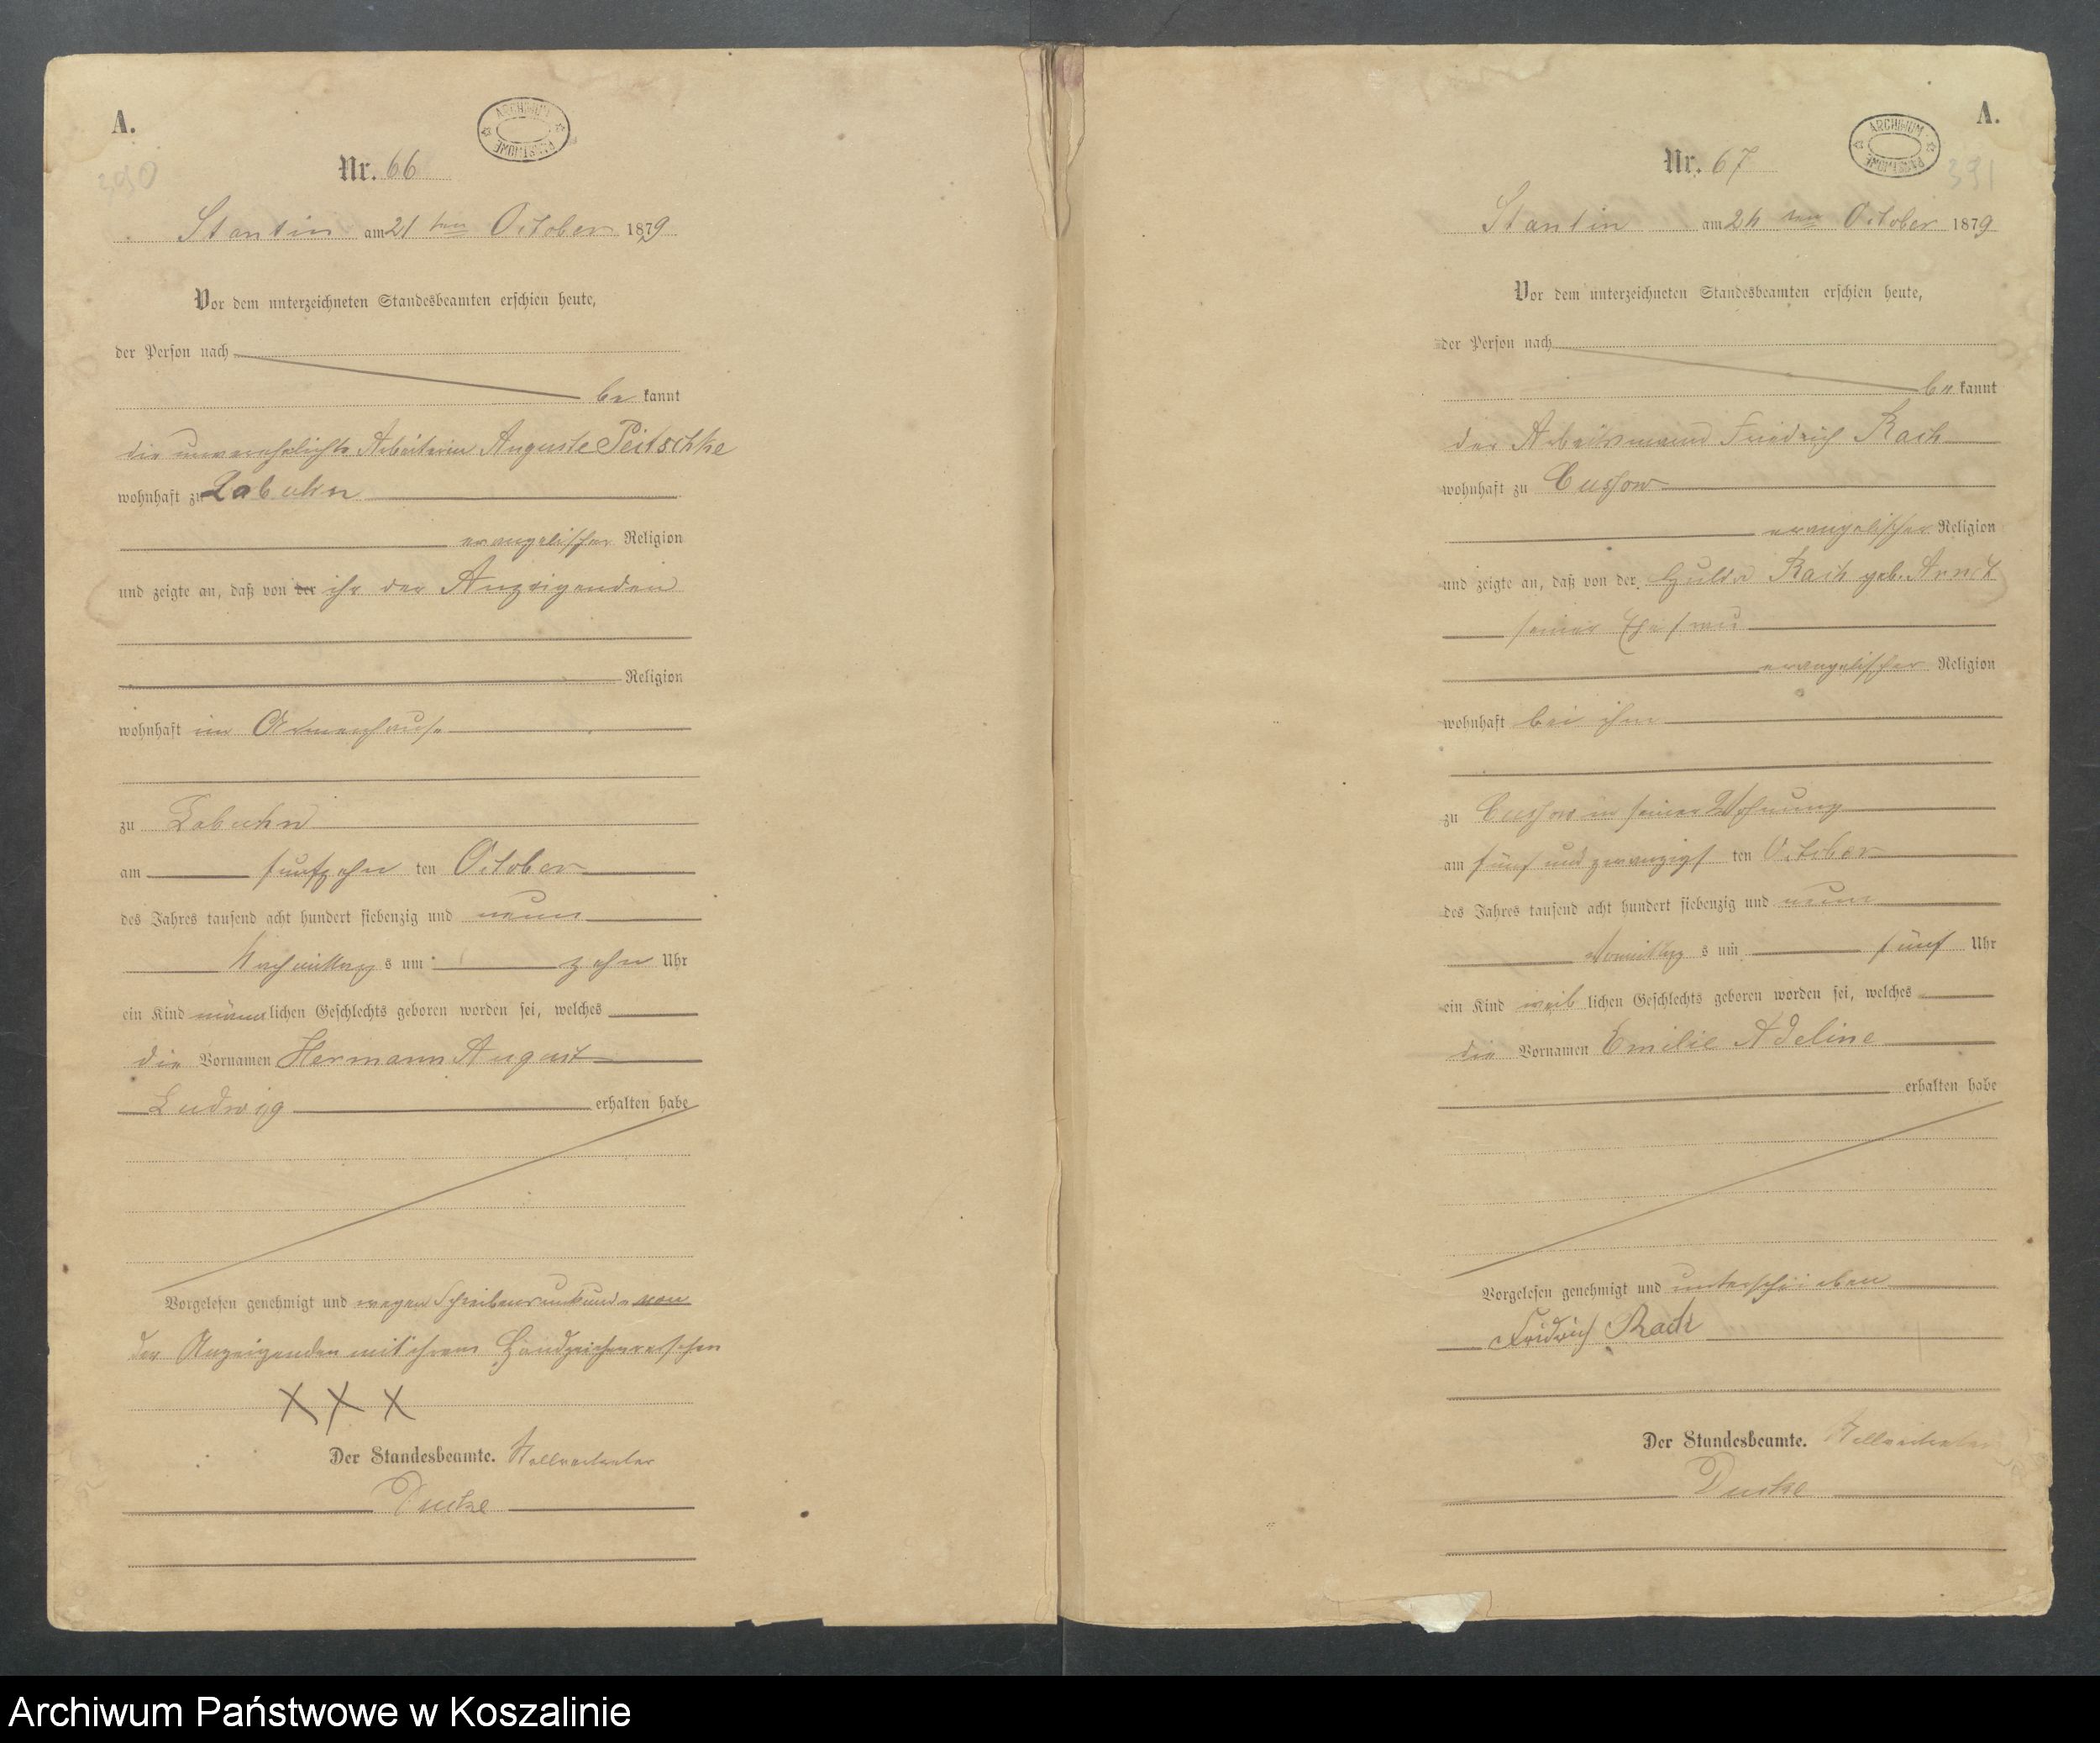 A.
390
ARCHIWUM PAŃSTWOWE
Nr. 66
Stantin am 21 ten October 1879
Vor dem unterzeichneten Standesbeamten erschien heute,
der Person nach
be kannt
die unverehelichte Arbeiterin Auguste Peitschke
wohnhaft zu Labuhn
evangelischer Religion
und zeigte an, daß von der ihr der Anzeigenden
Religion
wohnhaft im Armenhause
zu Labuhn
am fünfzehn ten October
des Jahres tausend acht hundert siebenzig und neun
Nachmittag s um zehn Uhr
ein Kind männ lichen Geschlechts geboren worden sei, welches
die Vornamen Hermann August
Ludwig erhalten habe
Vorgelesen genehmigt und wegen Schreibensunkunde von
der Anzeigenden mit ihrem Handzeichen versehen
X X X
Der Standesbeamte. Stellvertreter
Ducke
A.
391
ARCHIWUM PAŃSTWOWE
Nr. 67
Stantin am ten October 1879
Vor dem unterzeichneten Standesbeamten erschien heute,
der Person nach
be kannt
der Arbeitsmann Friedrich Rach
wohnhaft zu Cussow
evangelischer Religion
und zeigte an, daß von der Hulda Rach geb. Arndt
seiner Ehefrau
evangelischer Religion
wohnhaft bei ihm
zu Cussow in seiner Wohnung
am fünf und zwanzigst ten October
des Jahres tausend acht hundert siebenzig und neun
Vormittag s um fünf Uhr
ein Kind weib lichen Geschlechts geboren worden sei, welches
die Vornamen Emilie Adeline
erhalten habe
Vorgelesen genehmigt und unterschrieben
Fridrich Rach
Der Standesbeamte. Stellvertreter
Ducke
Archiwum Państwowe w Koszalinie